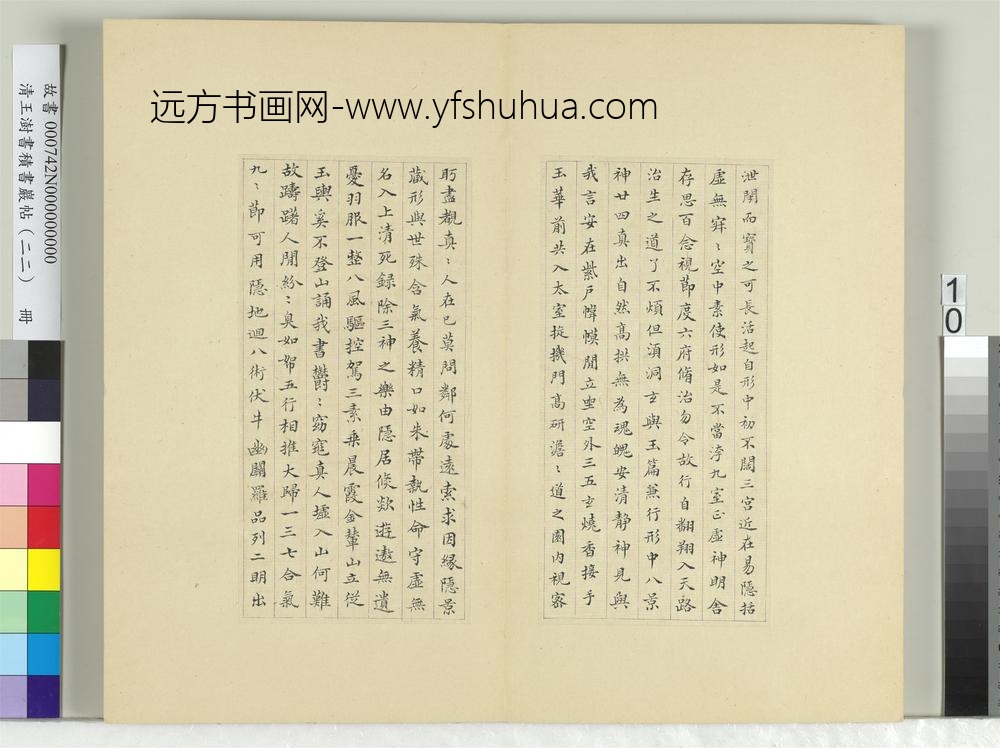 远方书画网-www.yfshuhua.com
故書 000742N000000000
清王澍書積書巖帖(二二) 冊
10
泄閑而寶之可長活起自形中初不闊三宮近在易隱括
虛無寂〻空中素使形如是不當汚九室正虛神明舍
存思百念視節度六府脩治勿令故行自翱翔入天路
治生之道了不煩但須洞玄與玉篇兼行形中八景
神廿四真出自然高拱無為魂魄安清靜神見與
我言安在紫戶幃幙間立坐空外三五玄燒香接手
玉華前共入太室璇璣門高研澹〻道之園內視密
眄盡覩真〻人在已莫問鄰何處遠索求因緣隱景
藏形與世殊含氣養精口如朱帶執性命守虛無
名入上清死録除三神之樂由隱居倏欻遊遨無遺
憂羽服一整八風驅控駕三素乗晨霞金輦山立從
玉輿奚不登山誦我書鬱〻窈窕真人墟入山何難
故躊躇人間紛〻臭如帤五行相推大歸一三七合氣
九〻節可用隱地迴八術伏牛幽闕羅品列二明出